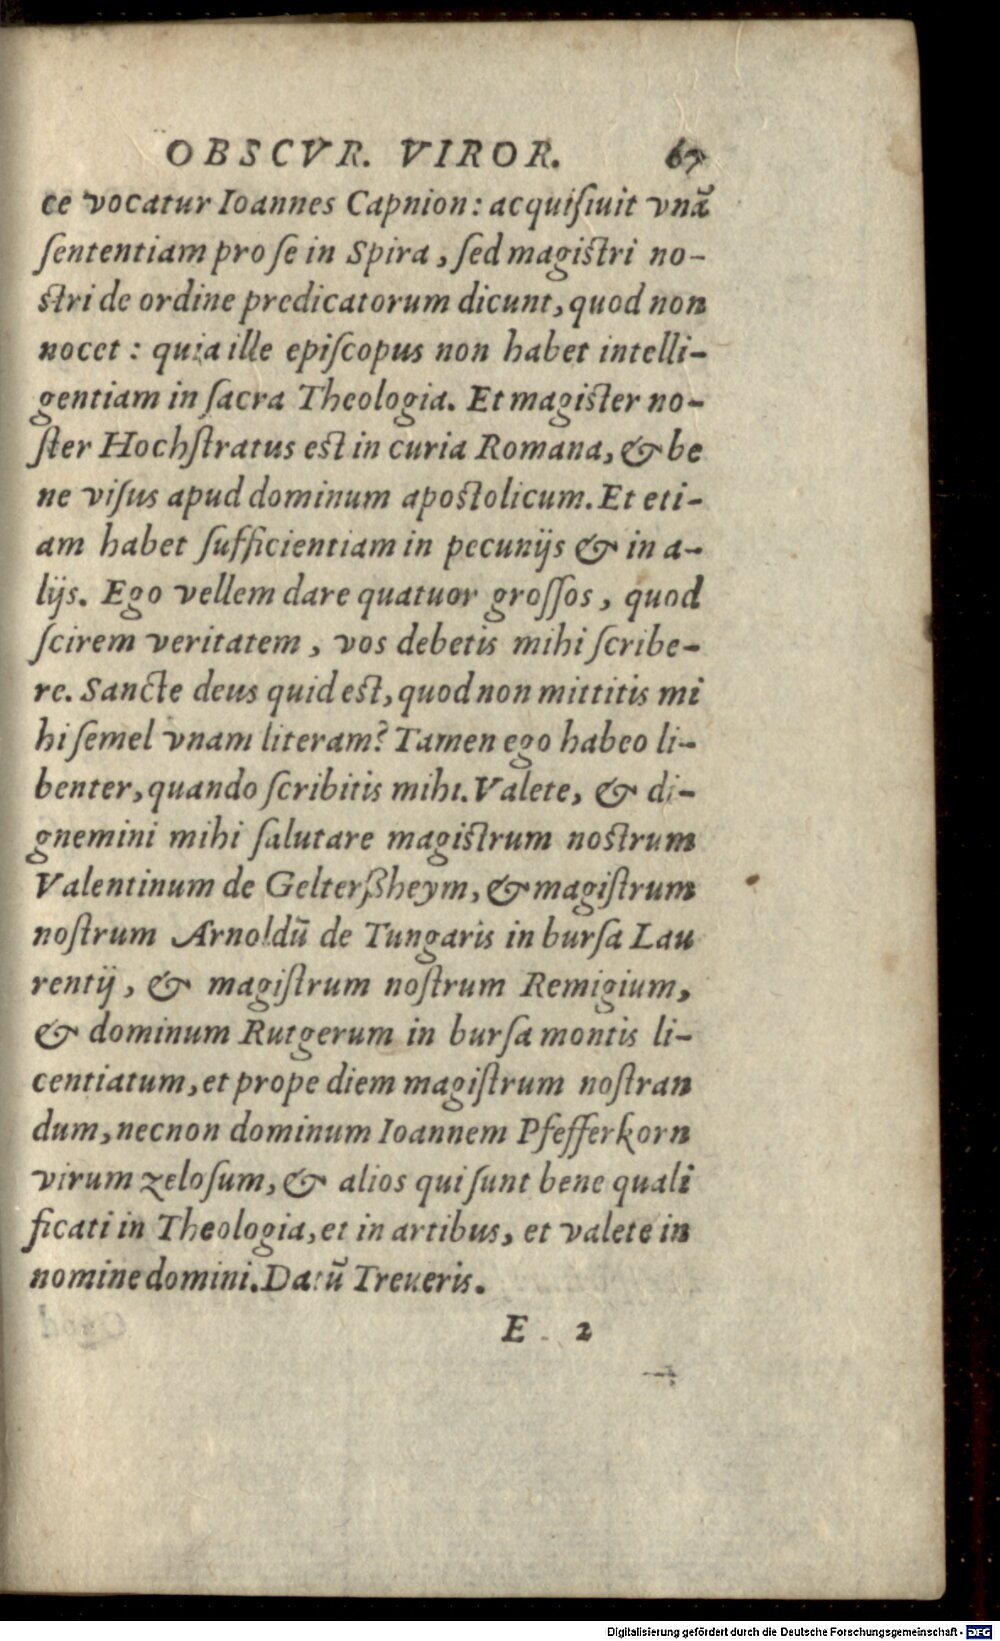 OBSCVR. VIROR. 67
ce vocatur Ioannes Capnion: acquiſiuit vnā
ſententiam pro ſe in Spira, ſed magiſtri no-
ſtri de ordine predicatorum dicunt, quod non
nocet: quia ille epiſcopus non habet intelli-
gentiam in ſacra Theologia. Et magiſter no-
ſter Hochſtratus eſt in curia Romana, & be
ne viſus apud dominum apoſtolicum. Et eti-
am habet ſufficientiam in pecunijs & in a-
lijs. Ego vellem dare quatuor groſſos, quod
ſcirem veritatem, vos debetis mihi ſcribe-
re. Sancte deus quid eſt, quod non mittitis mi
hi ſemel vnam literam? Tamen ego habeo li-
benter, quando ſcribitis mihi. Valete, & di-
gnemini mihi ſalutare magiſtrum noſtrum
Valentinum de Gelterßheym, & magiſtrum
noſtrum Arnoldū de Tungaris in burſa Lau
rentij, & magiſtrum noſtrum Remigium,
& dominum Rutgerum in burſa montis li-
centiatum, et prope diem magiſtrum noſtran
dum, necnon dominum Ioannem Pfefferkorn
virum zeloſum, & alios qui ſunt bene quali
ficati in Theologia, et in artibus, et valete in
nomine domini. Datū Treueris.
E 2
Digitalisierung gefördert durch die Deutsche Forschungsgemeinschaft - DFG